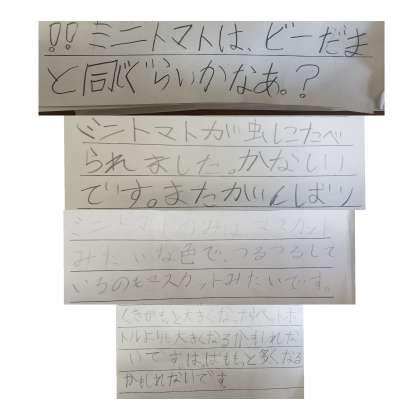 !!ミニトマトは、ビーだま
と同じぐらいかなあ。?
ミニトマトが虫にたべ
られました。かなしい
です。またがんばり
ミニトマトのみは、マスカット
みたいな色で、つるつるして
いるのもマスカットみたいです。
くきがもっと大きくなったらペットボ
トルよりも大きくなるかもしれな
いです。はっぱももっと多くなる
かもしれないです。